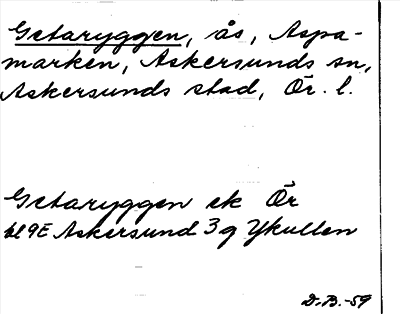 Getaryggen, ås, Aspa-
marken, Askersunds sn,
Askersunds stad, Ör. l.
Getaryggen ek Ör
bl 9E Askersund 3 g Ykullen
D.B.-59